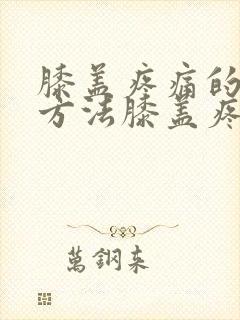 膝盖疼痛的
方法膝盖疼
萬鋼来